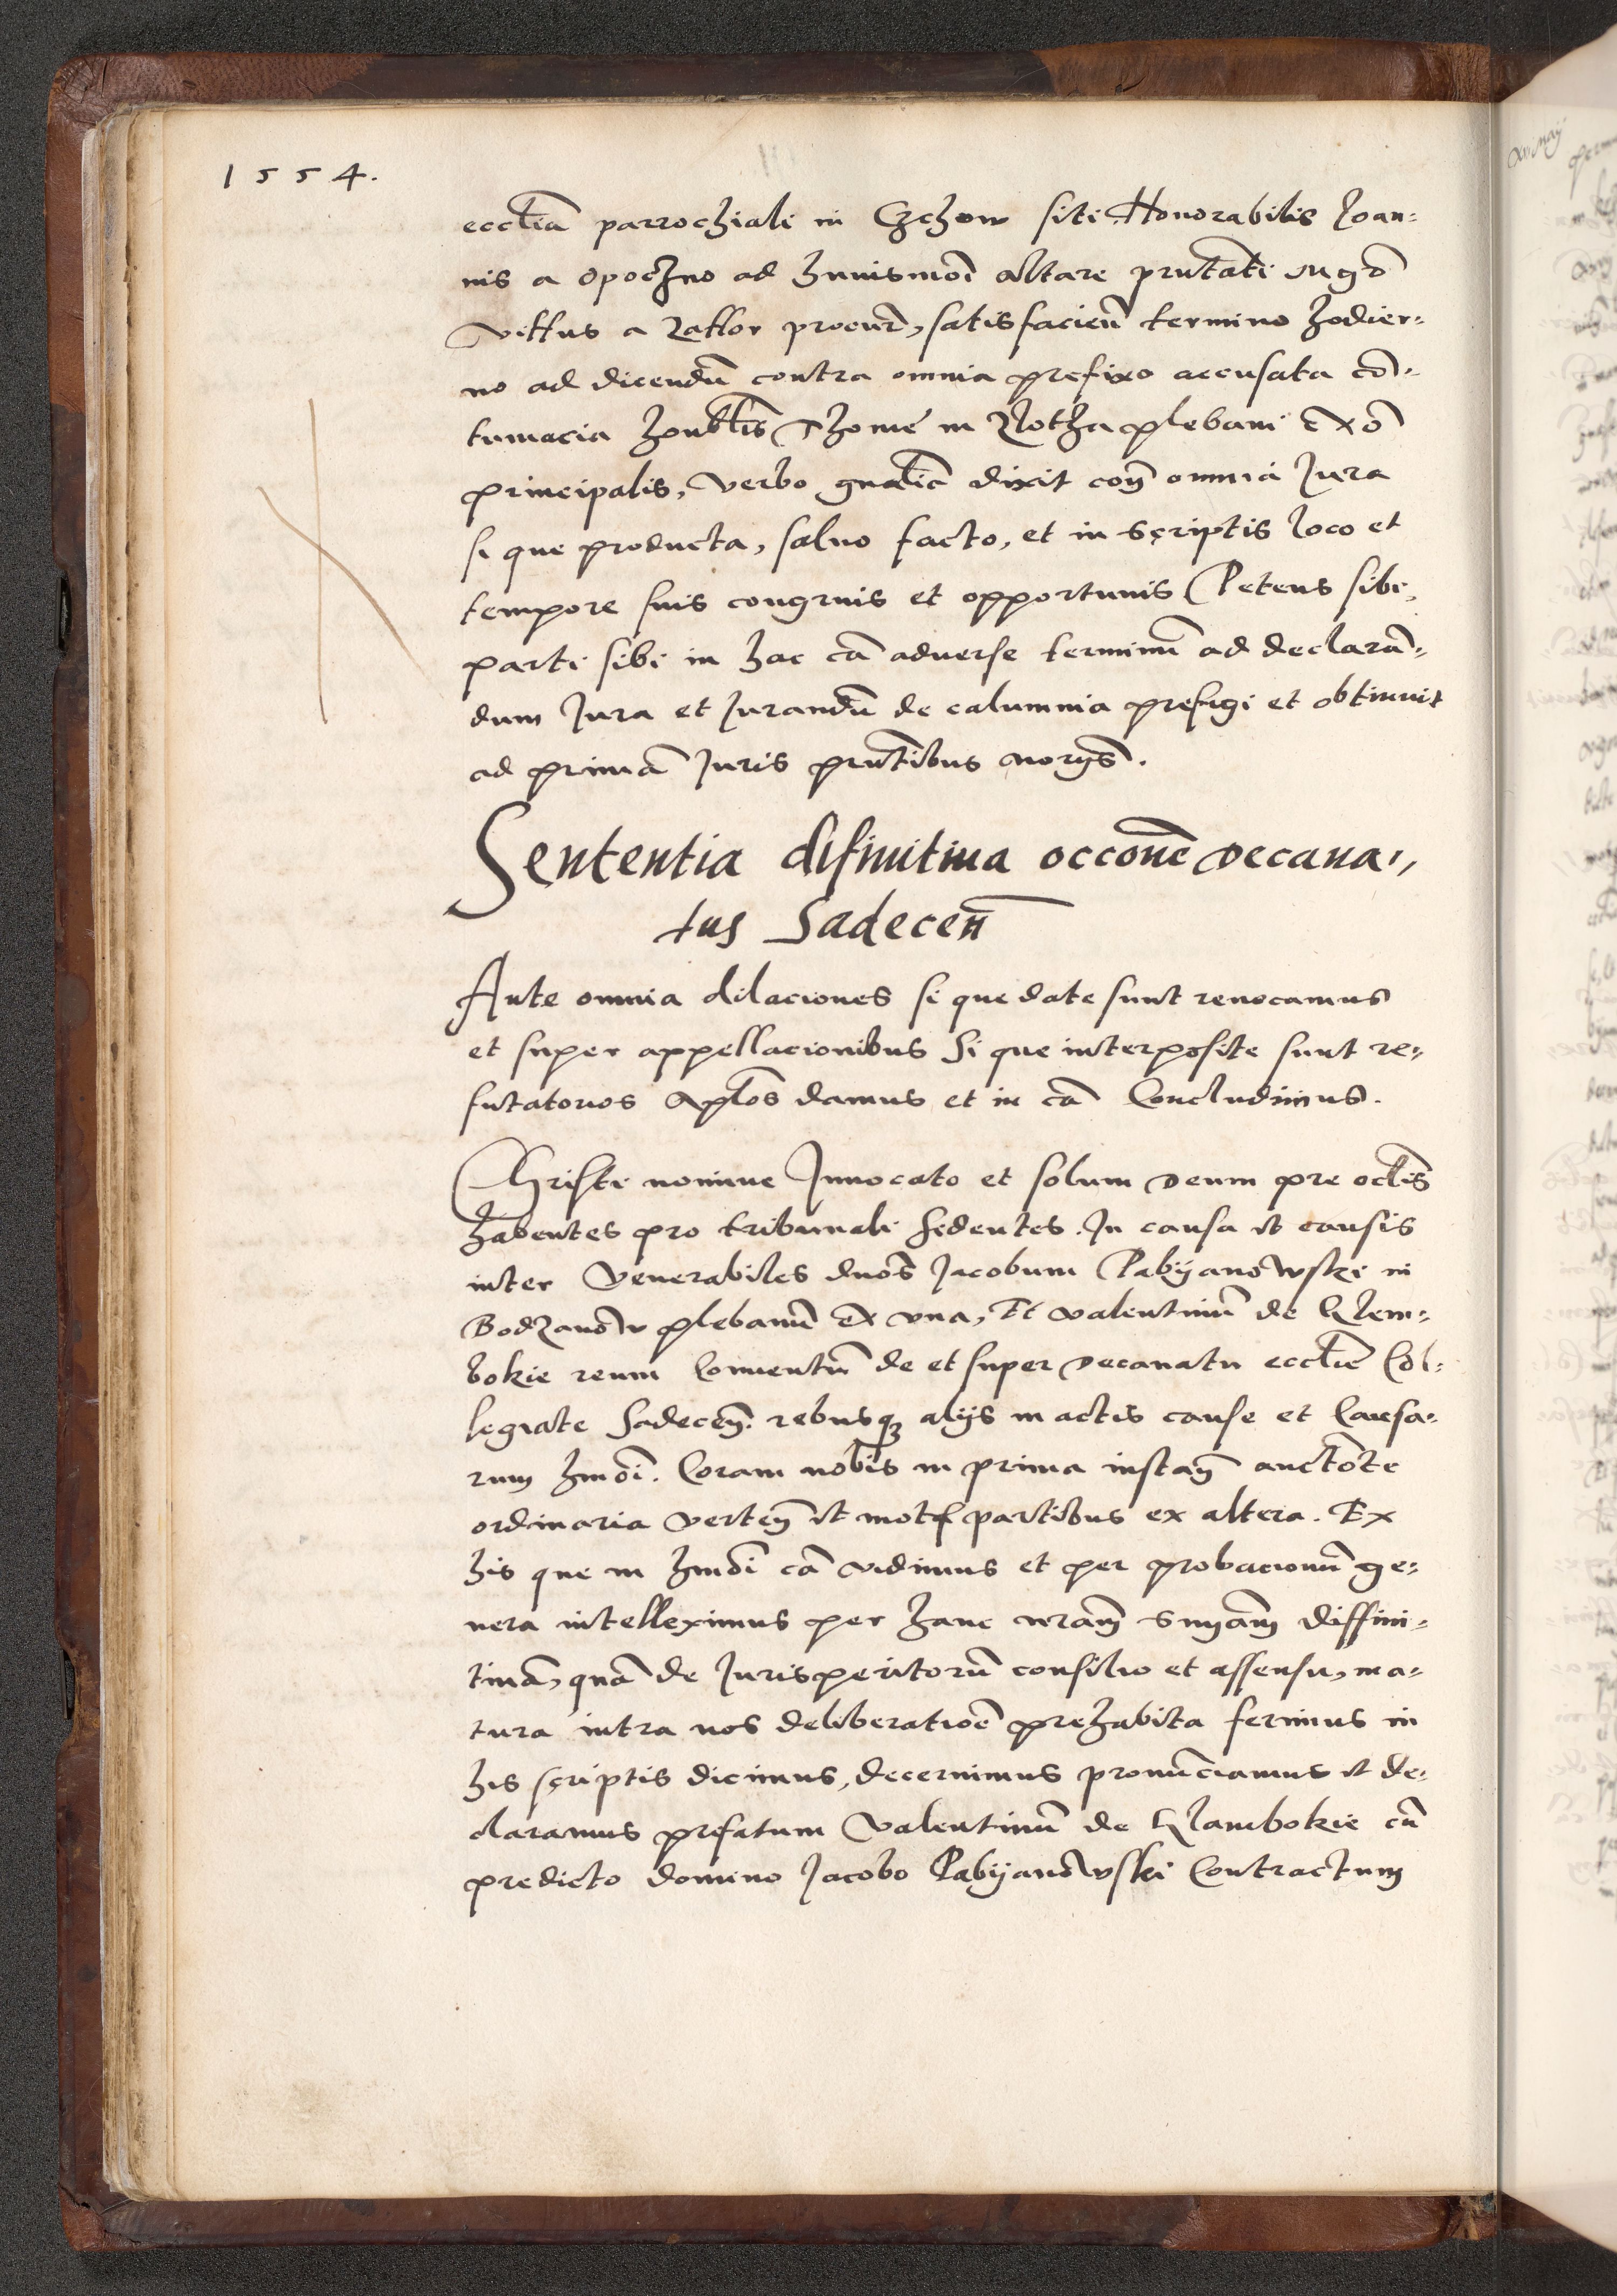 1554.
eccľiā parrochiali in Czchow siti Honorabilis Joan-
nis a Opoczno ad hmnōi altare pn̄tati mgr̄
Vittus a Zathor procur̄, satisfacien̄ termino hodier-
no ad dicendū contra omnia prefixo accusata cō-
tumacia honbľis Thome in plebani ex ō
principalis, verbo gnaľiē dixit con̄ omnia Jura
si que producta, saluo facto, et in scriptis loco et
tempore suis congruis et opportunis Petens sibi,
parti sibi in hac cā aduerse terminū ad declarā-
dum Jura et Jurandū de calumnia prefigi et obtinuit
ad primā Juris pn̄tibus
Sententia difinitiua occōne Decana-
tus Sadecen̄
Ante omnia dilaciones si que date sunt reuocamus
et super appellacionibus Si que interposite sunt re-
futatorios Apľos damus et in cā Concludimus.
Christi nomine Inuocato et solum Deum pre ocľis
habentes pro tribunali Sedentes. In causa et causis
inter Venerabiles dnōs Jacobum Pabyanowski in
Bodzanow plebanū Ex vna, Et Valentinū de Glem-
bokie reum Conuentū de et super Decanatu eccľie Col-
legiate Sadecen̄. rebusq3 alijs in actis cause et Causa-
rum hmōi. Coram nobis in prima instan̄ auctōte
ordinaria Verten̄ et mot partibus ex altera. Ex
his que in hmōi cā vidimus et per probacionū ge-
nera intelleximus per hanc nrām snīam diffini-
tiuā, quā de Jurisperitorū consilio et assensu, ma-
tura intra nos deliberatiōe prehabita ferimus in
his scriptis dicimus, decernimus pronūciamus et de-
claramus prefatum Valentinū de Glambokie cū
predicto domino Jacobo Pabyanowski Contractum